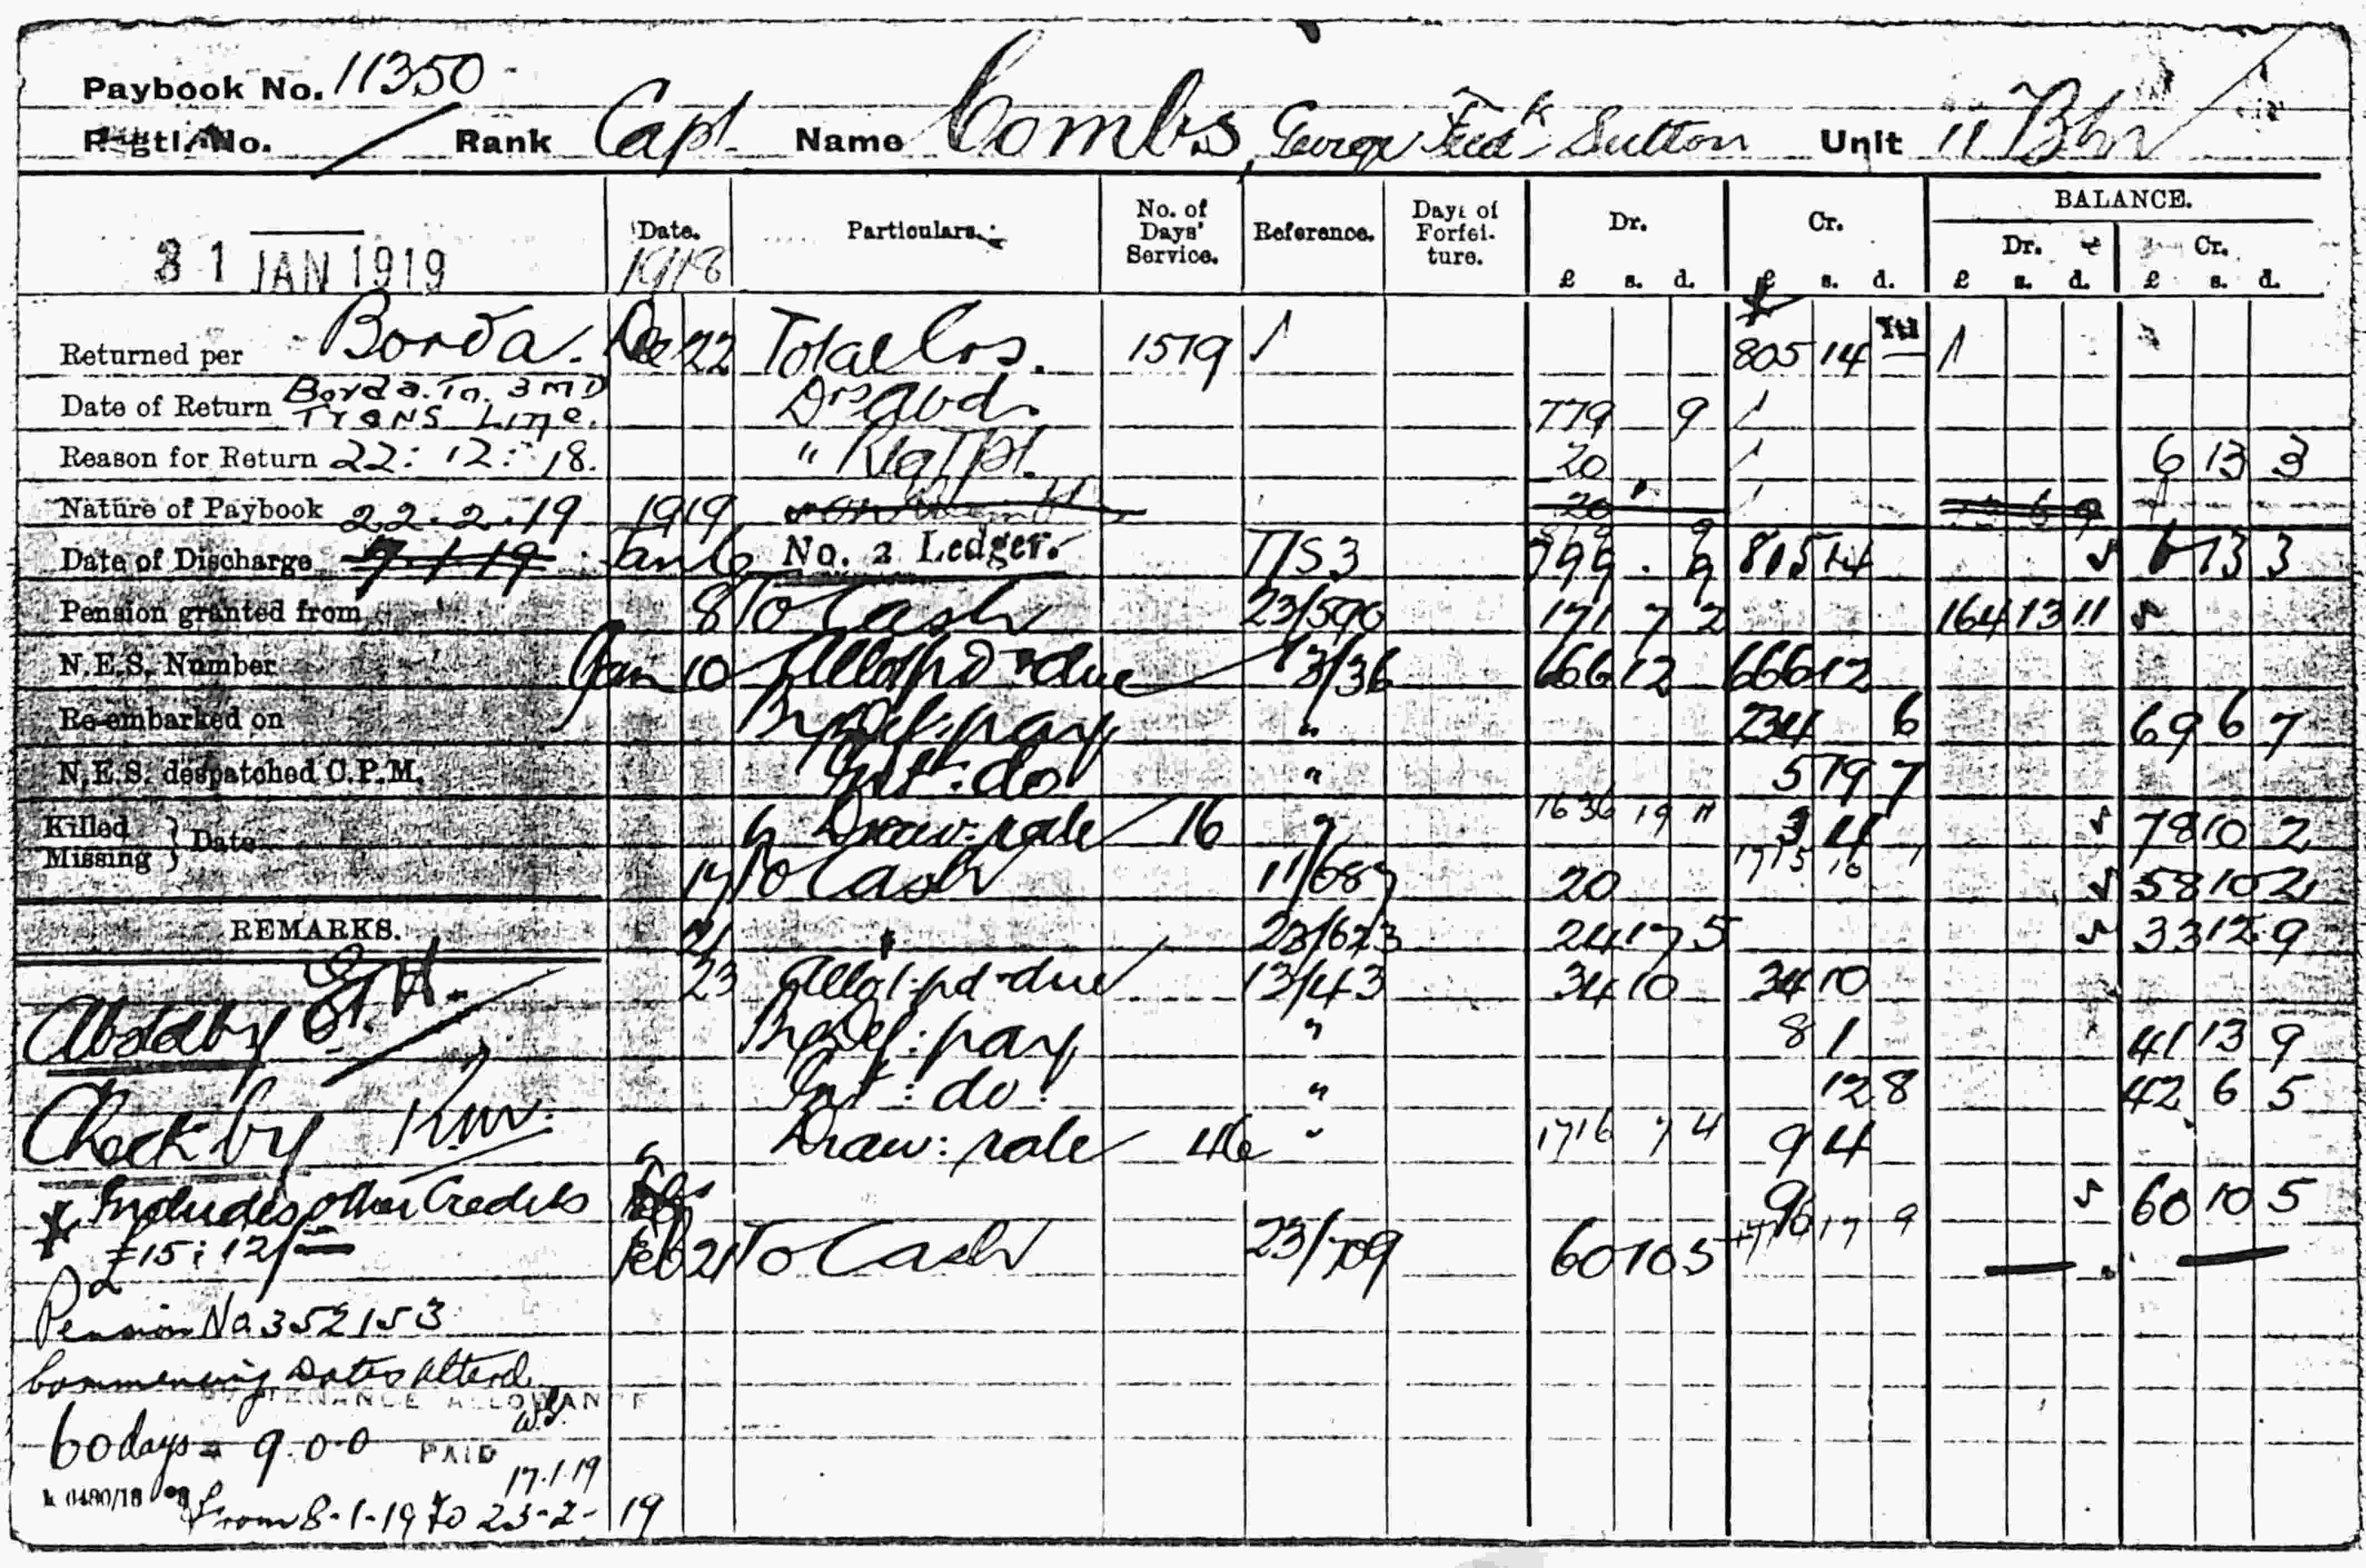 Paybook No. 11350
Regtl. No. / Rank Capt. Name Combs, George Fredk Sutton Unit 11 Bn
31 JAN 1919
Date. 1918 Particulars. No. of Days' Service. Reference. Days of Forfeiture. Dr. £ s. d. Cr. £ s. d. BALANCE. Dr. £ s. d. Cr. £ s. d.
Returned per Borda. Dec 22 Total Crs. 1519 805 14 —
Date of Return Borda. To. 3 MD TRANS Line. Drs Abd. 779 9
Reason for Return 22: 12: 18. " 20 6 13 3
Nature of Paybook 22.2.19 1919 20
Date of Discharge 7/1/19 Jan 6 No. 2 Ledger. T/S3 799 . 9 805 14 6 13 3
Pension granted from 8 To Cash 23/590 171 7 2 164 13 11
N.E.S. Number Jan 10 Allot pd & due 13/36 666 12 666 12
Re-embarked on By Def: pay " 234 6 69 6 7
N.E.S. despatched C.P.M. Int: do " 5 19 7
Killed Missing } Date " Draw: rate 16 " 1636 19 11 3 4 78 10 2
17 To Cash 11/687 20 1715 10 1 58 10 2
REMARKS. 21 " 23/623 24 17 5 33 12 9
23 Allot: pd & due 13/43 34 10 34 10
Abstd by By Def: pay " 8 1 41 13 9
Int: do " 12 8 42 6 5
Check by " Draw: rate 46 " 1716 7 4 9 4
* Includes other Credits 9 60 10 5
£15:12/— Feb 21 To Cash 23/709 60 10 5 1776 17 9
Pension No 352153
Commencing Dates Altered
SUSTENANCE ALLOWANCE
60 days = 9.0.0 PAID
17.1.19
From 8-1-19 to 23-2-19